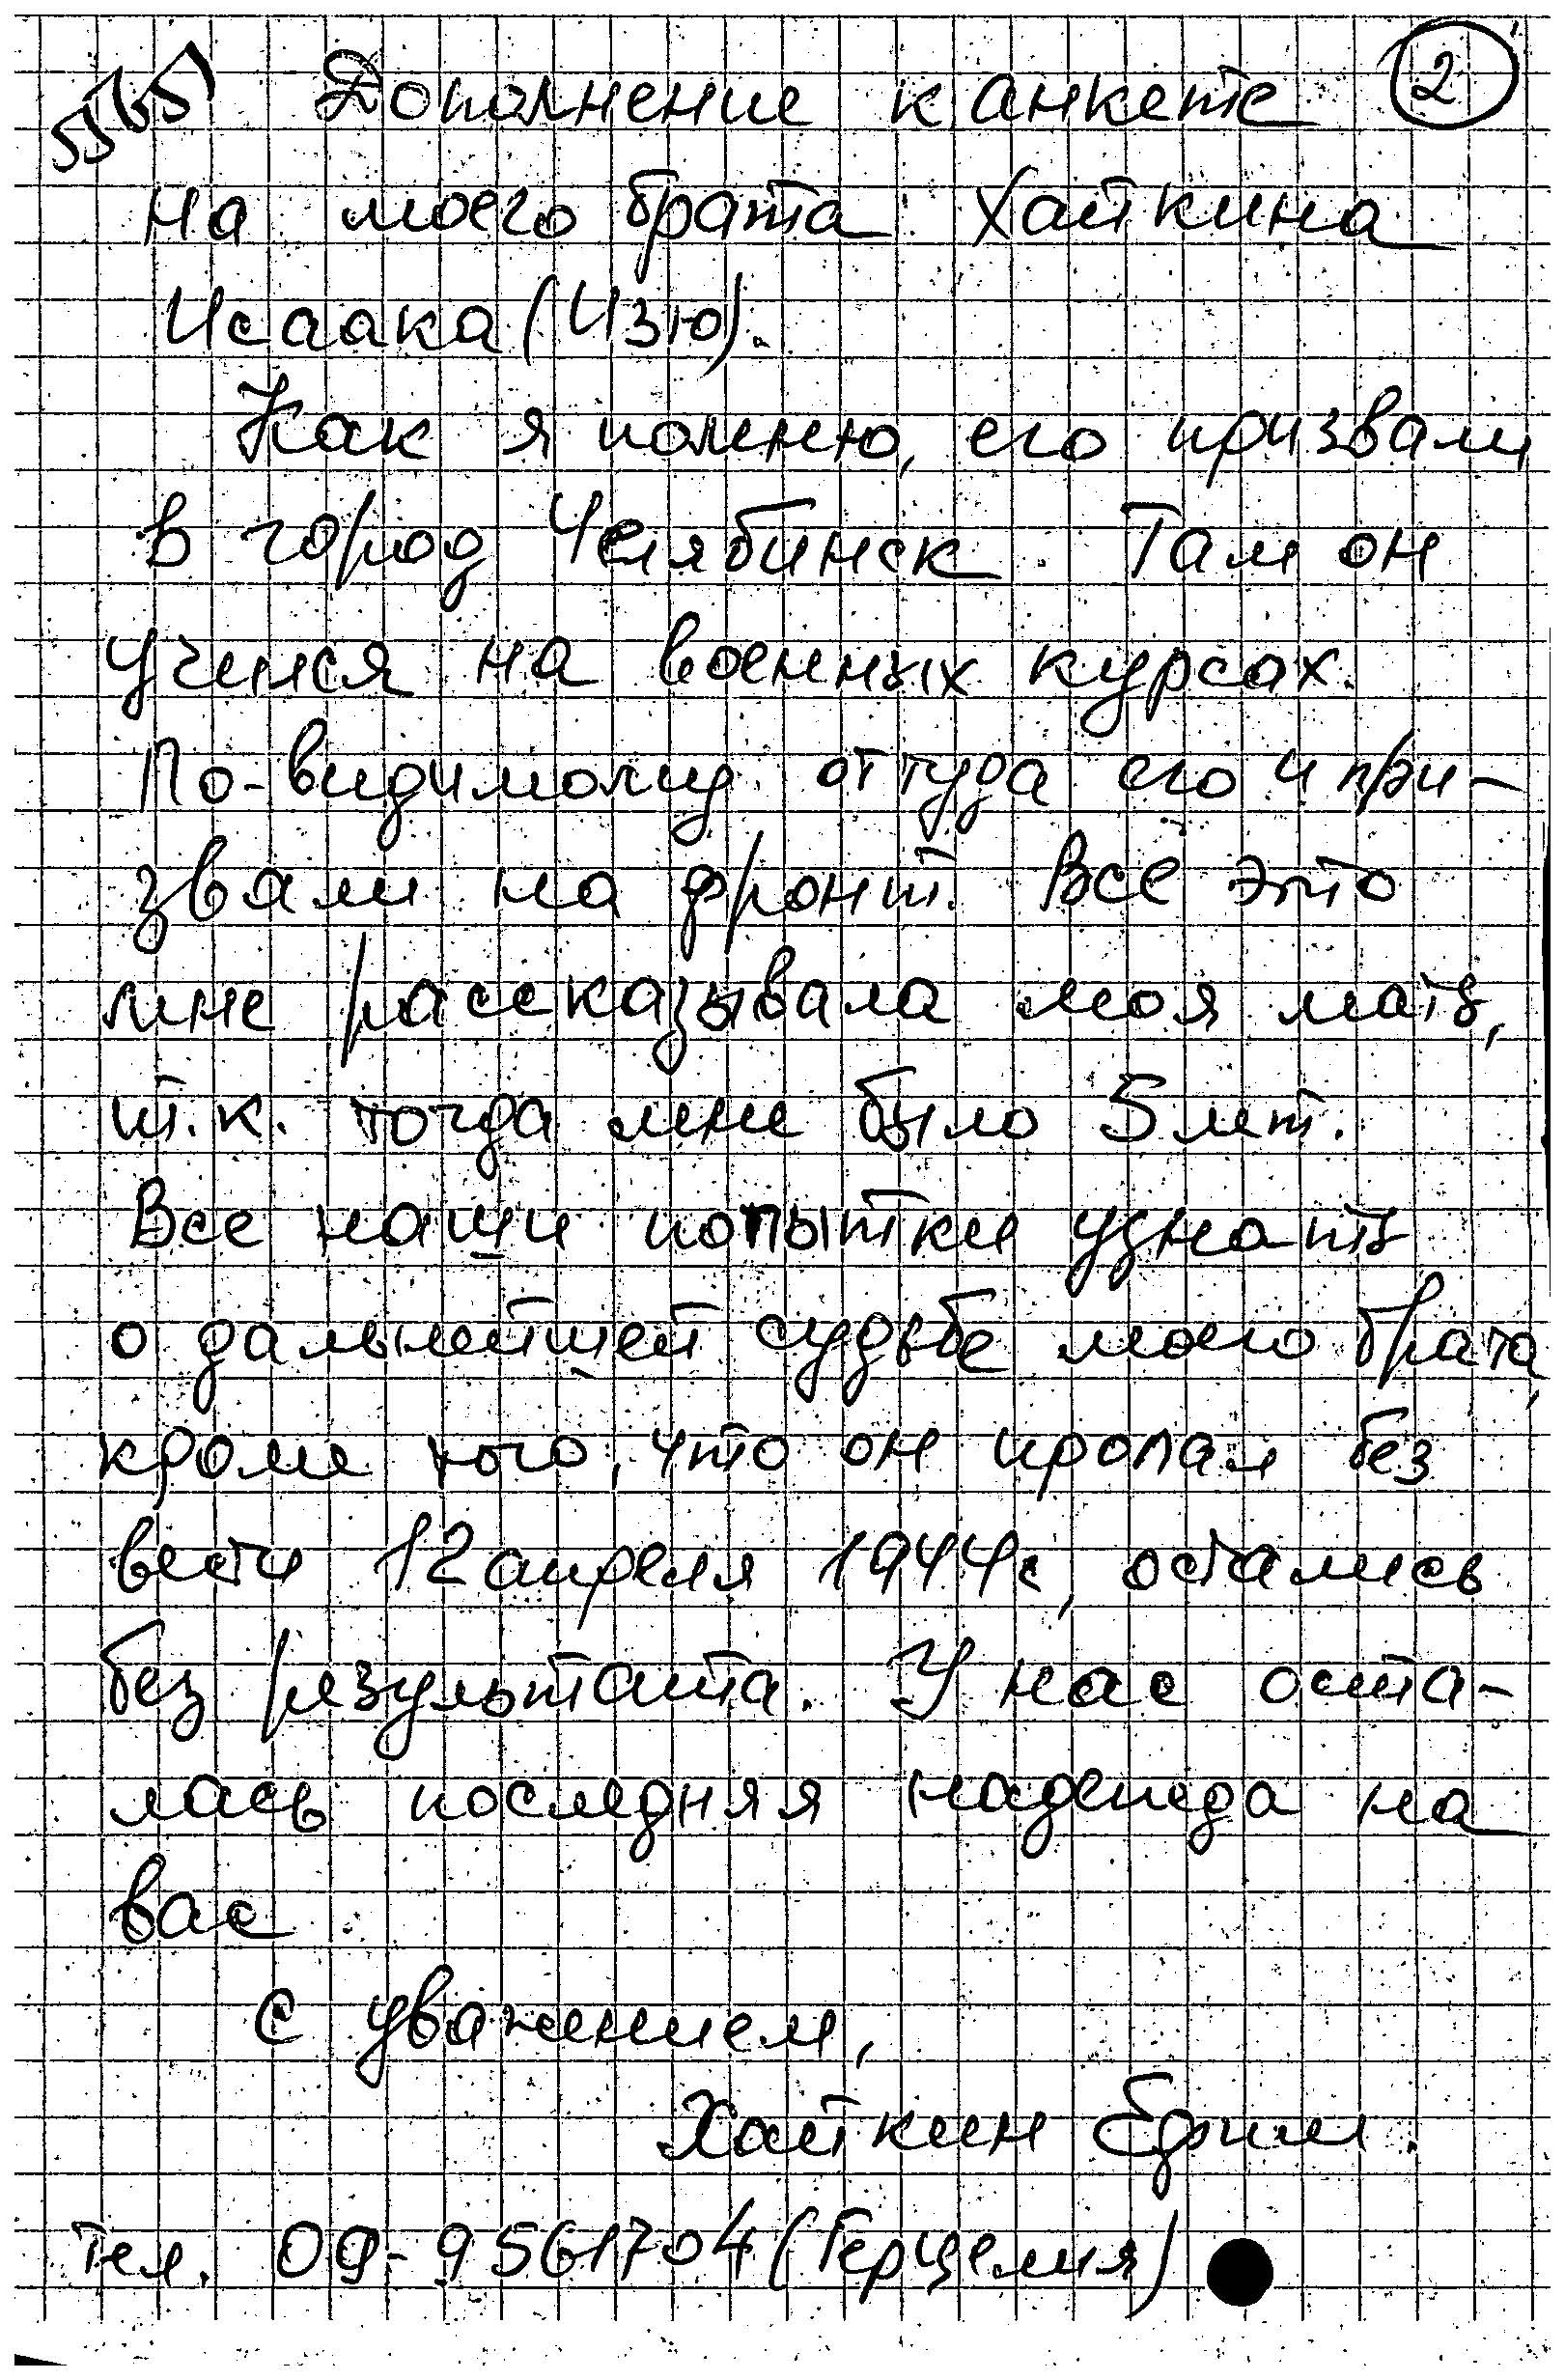 5565 Дополнение к анкете 2
на моего брата Хайкина
Исаака (Изю).
Как я помню, его призвали
в город Челябинск. Там он
учился на военных курсах.
По-видимому оттуда его и при-
звали на фронт. Всё это
мне рассказывала моя мать,
т.к. тогда мне было 5 лет.
Все наши попытки узнать
о дальнейшей судьбе моего брата,
кроме того, что он пропал без
вести 12 апреля 1944г, остались
без результата. У нас оста-
лась последняя надежда на
вас
С уважением,
Хайкин Ефим.
Тел. 09-9561704 (Герцелия)